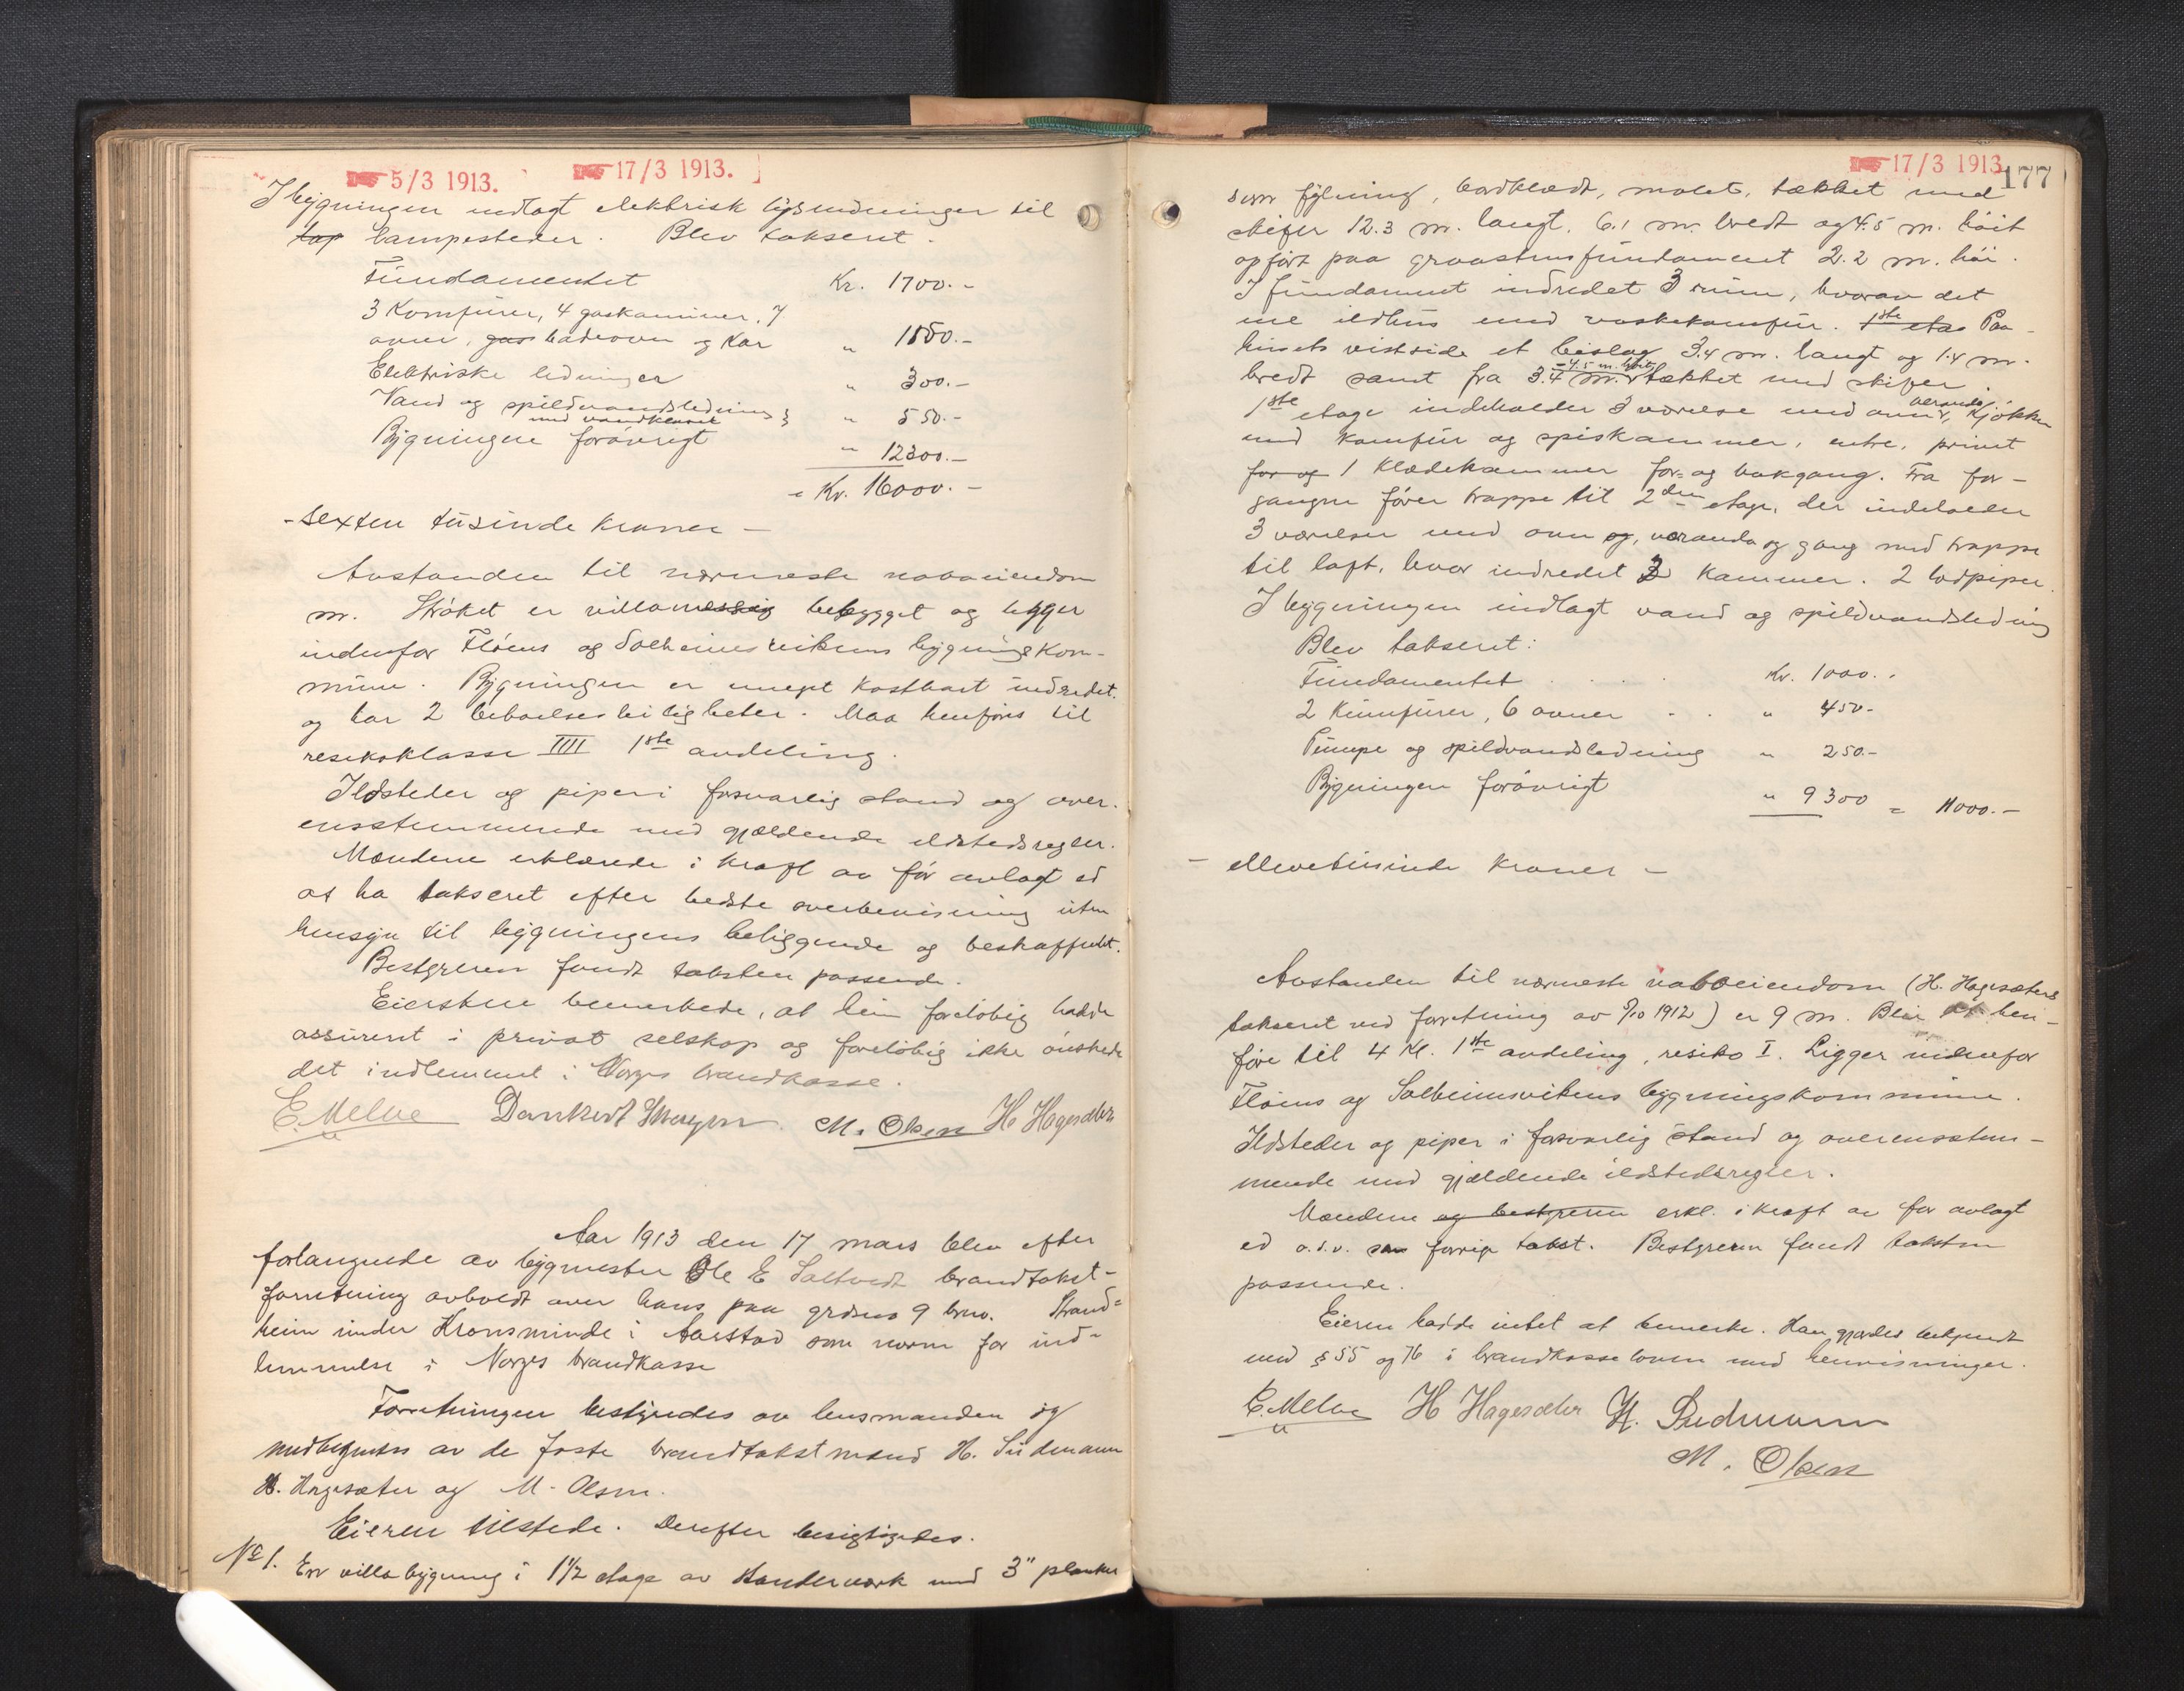 5/3 1913. 17/3 1913.
I bygningen indlagt elektrisk lysledninger til
lap lampesteder. Blev takseret.
Fundamentet Kr. 1700.-
3 Komfurer, 4 gaskaminer, 7
ovner, gas badeovn og Kar " 1150.-
Elektriske ledninger " 300.-
Vand og spildvandsledning
med vandkloset " 550.-
Bygningen forøvrigt " 12300.-
= Kr. 16000.-
- sexten tusinde kroner -
Avstanden til nærmeste naboeiendom
m. Strøket er villamessig bebygget og ligger
indenfor Fløens og Solheimsvikens bygningskom-
mune. Bygningen er meget kostbart indredet
og har 2 beboelsesleiligheter. Maa henføres til
resikoklasse IIII 1ste avdeling.
Ildsteder og piper i forsvarlig stand og over-
ensstemmende med gjældende ildstedsregler.
Mændene erklærede i kraft av før avlagt ed
at ha takseret efter bedste overbevisning uten
hensyn til bygningens beliggende og beskaffenhet.
Bestyreren fandt taksten passende.
Eiersken bemerkede, at hun foreløbig hadde
assureret i privat selskap og foreløbig ikke ønskede
det indlemmet i Norges brandkasse.
E. Melve Dankert M. Olsen H Hagesæter
Aar 1913 den 17 mars blev efter
forlangende av bygmester Ole E Saltvedt brandtakst-
forretning avholdt over hans paa grdsno 9 brno. Strand-
heim under Kronsminde i Aarstad som norm for ind-
lemmelse i Norges brandkasse
Forretningen bestyredes av lensmanden og
av de faste brandtakstmænd H. Südmann
H. Hagesæter og M. Olsen.
Eieren tilstede. Derefter besigtigedes.
No 1. En villabygning i 1 1/2 etage av standerværk med 3" planker
17/3 1913
177
som fylning, bordklædt, malet, tækket med
skifer 12.3 m. langt, 6.1 m. bredt og 4.5 m. høit
opført paa graastensfundament 2.2 m. høi.
I fundament indredet 3 rum, hvorav det
ene ildhus med vaskekomfur. 1ste etas Paa
husets vestside et bislag 3.4 m. langt og 1.4 m.
- 4.5 m. høit
bredt samt fra 3.4 m. tækket med skifer.
veranda
1ste etage indeholder 3 værelse med ovner, kjøkken
med komfur og spiskammer, entre, privet
for og 1 Klædekammer for- og bakgang. Fra for-
gangen fører trappe til 2den etage, der indeholder
3 værelser med ovn og, veranda og gang med trappe
til loft, hvor indredet 2 kammer. 2 lodpiper.
I bygningen indlagt vand og spildvandsledning
Blev takseret:
Fundamentet Kr. 1000.-
2 Kumfurer, 6 ovner " 450-
Pumpe og spildvandsledning " 250.-
Bygningen forøvrigt " 9300 = 11000.-
- ellevetusinde kroner -
Avstanden til nærmeste naboeiendom (H. Hagesæters
takseret ved forretning av 5/10 1912) er 9 m. Blir at hen-
føre til 4 Kl. 1ste avdeling, resiko I. Ligger indenfor
Fløens og Solheimsvikens bygningskommune.
Ildsteder og piper i forsvarlig stand og overensstem-
mende med gjældende ildstedsregler.
Mændene og bestyreren erkl. i kraft av før avlagt
ed o.s.v. som forrige takst. Bestyreren fandt taksten
passende.
Eieren hadde intet at bemerke. Han gjordes bekjendt
med § 55 og 76 i brandkasseloven med henvisninger.
E. Melve H Hagesæter H. Südmann
M. Olsen